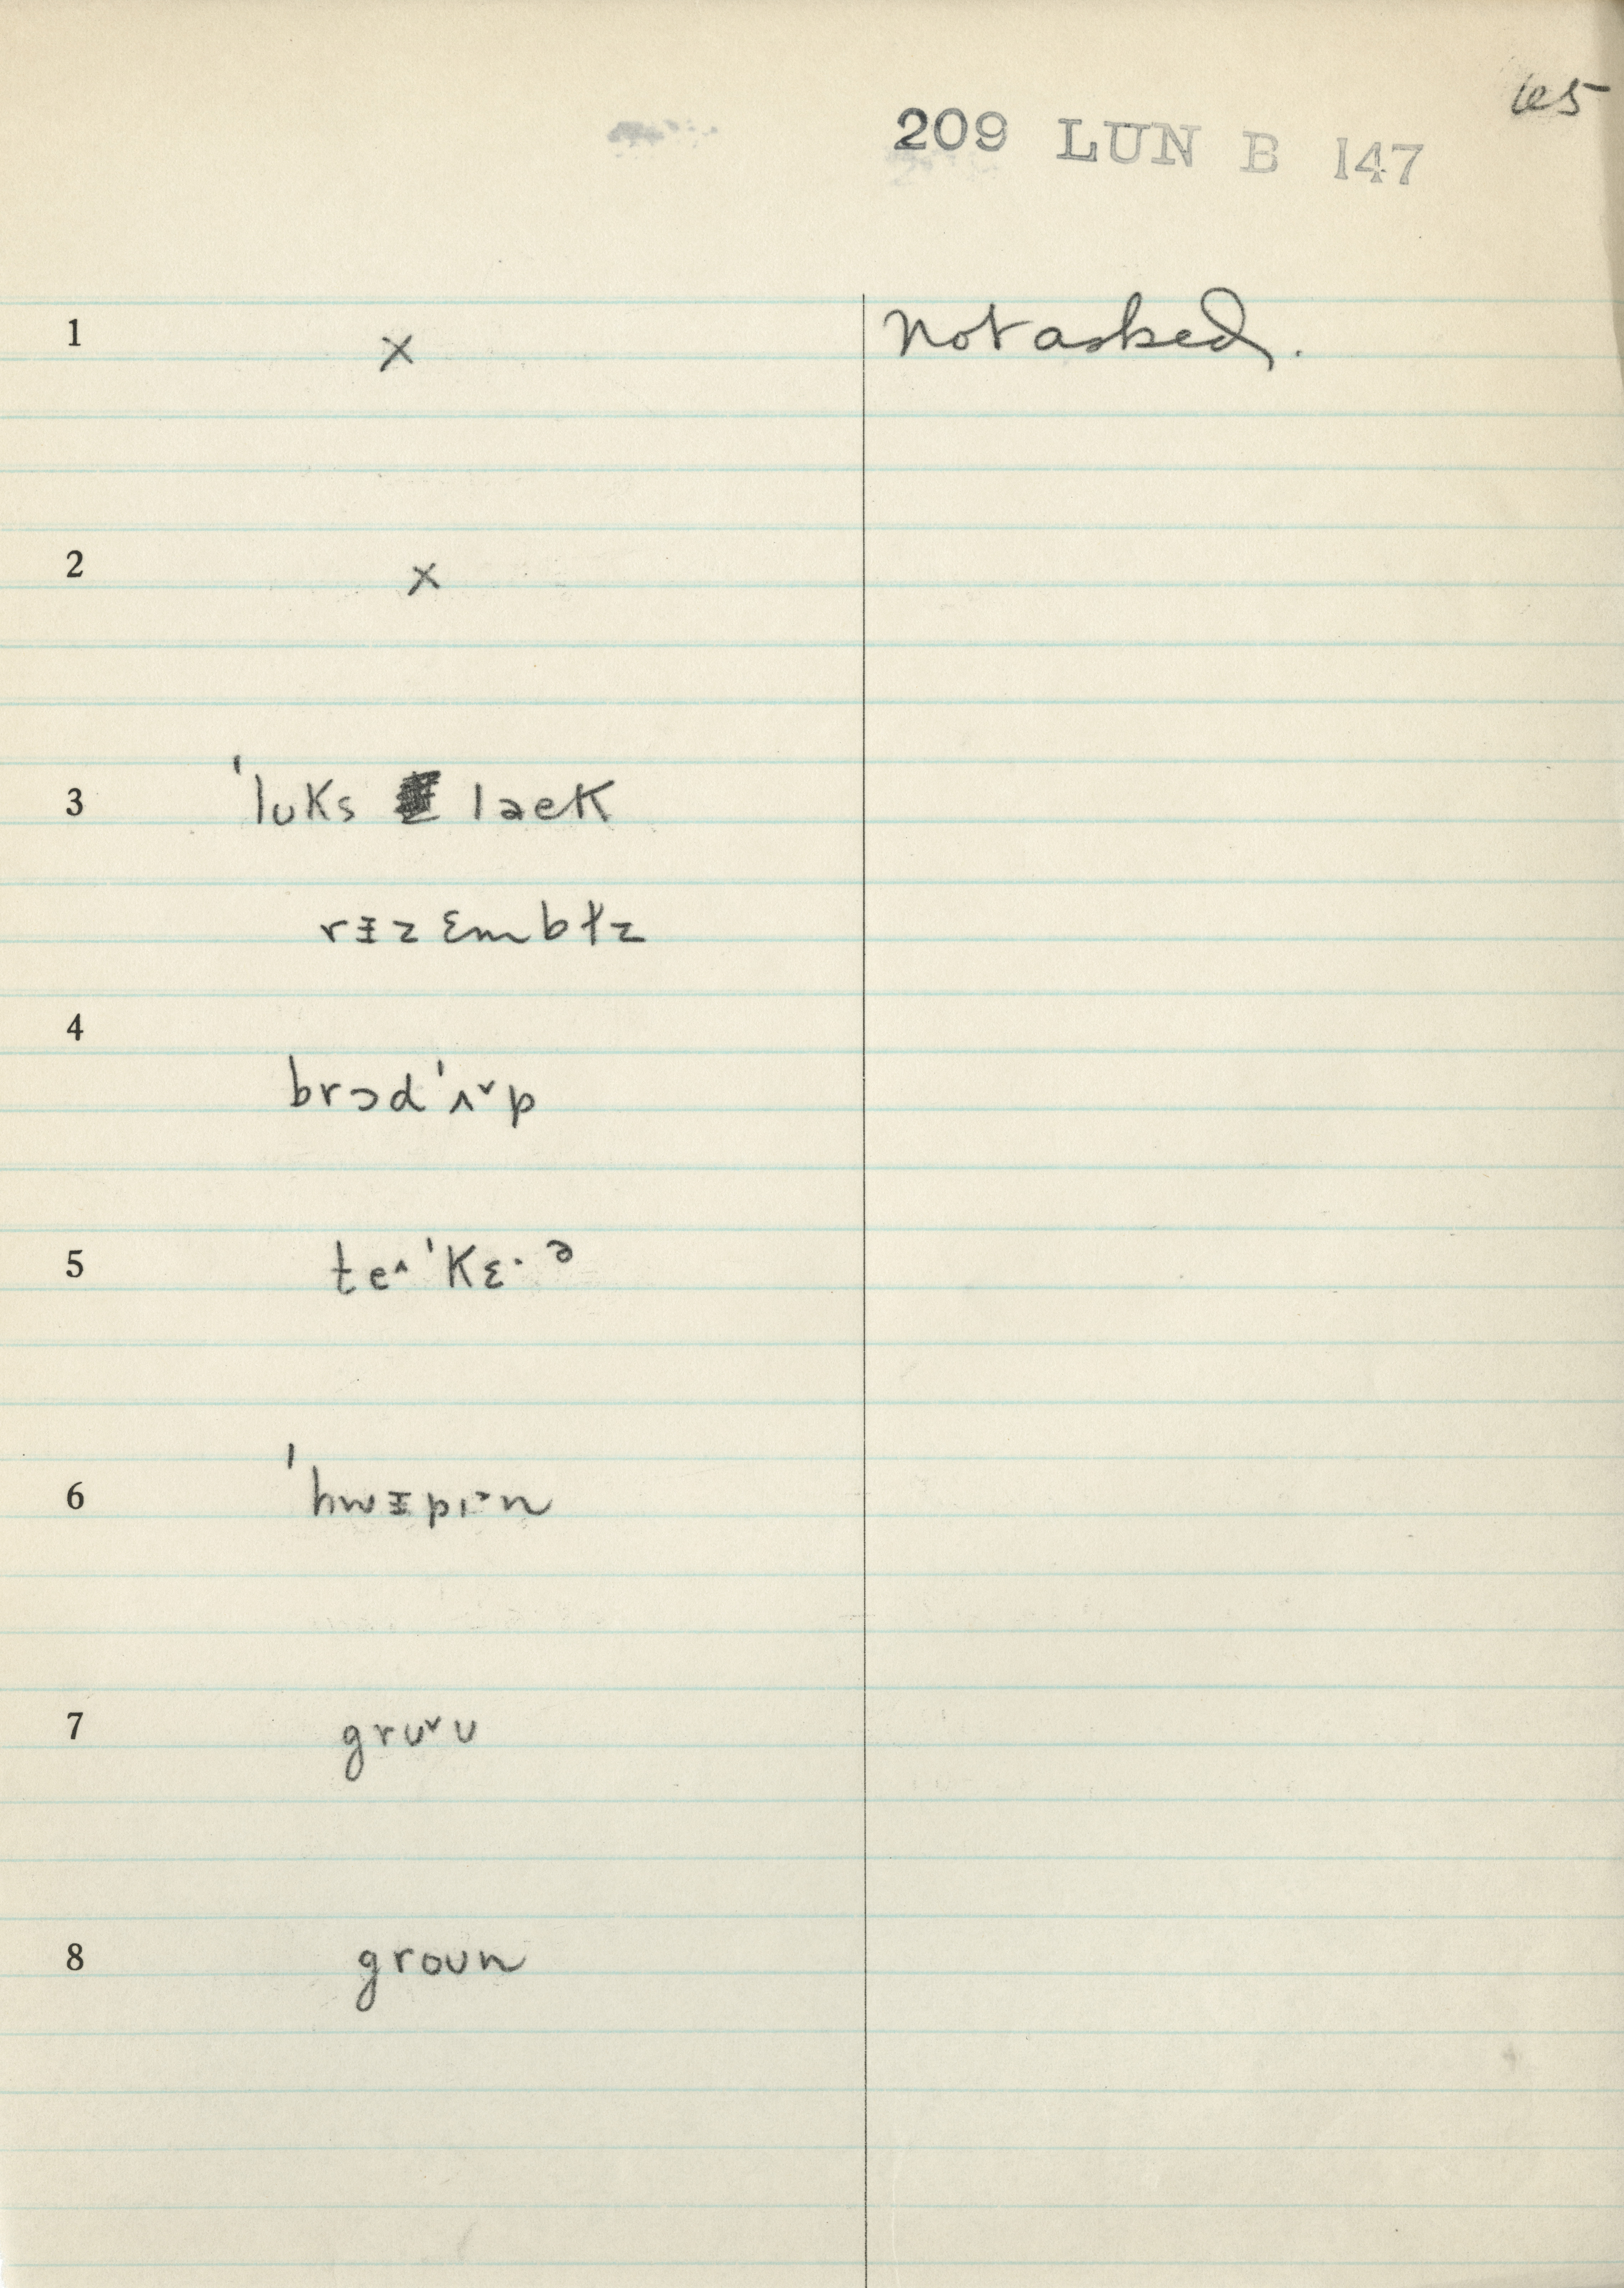 65
209 LUN B 147
1 x not asked.
2 x
3 ˈlʊks ləek
rᵻzɛmbɫz
4 brɔdˈʌ˅p
5 te˄ˈkɛ·ᵊ
6 ˈhwᵻpɪ˃n
7 gru˅u
8 groun